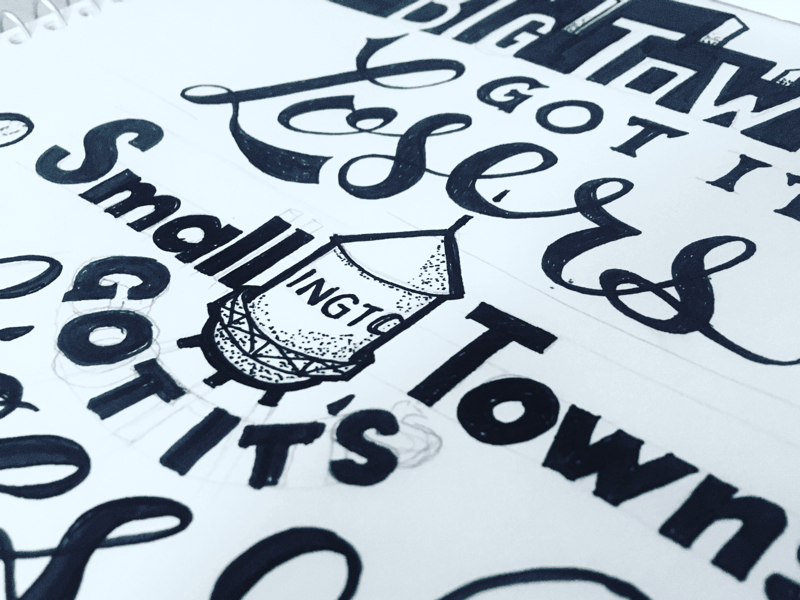 BIG TOWN
GOT IT'
Losers
Small Towns
INGTO
GOT IT'S